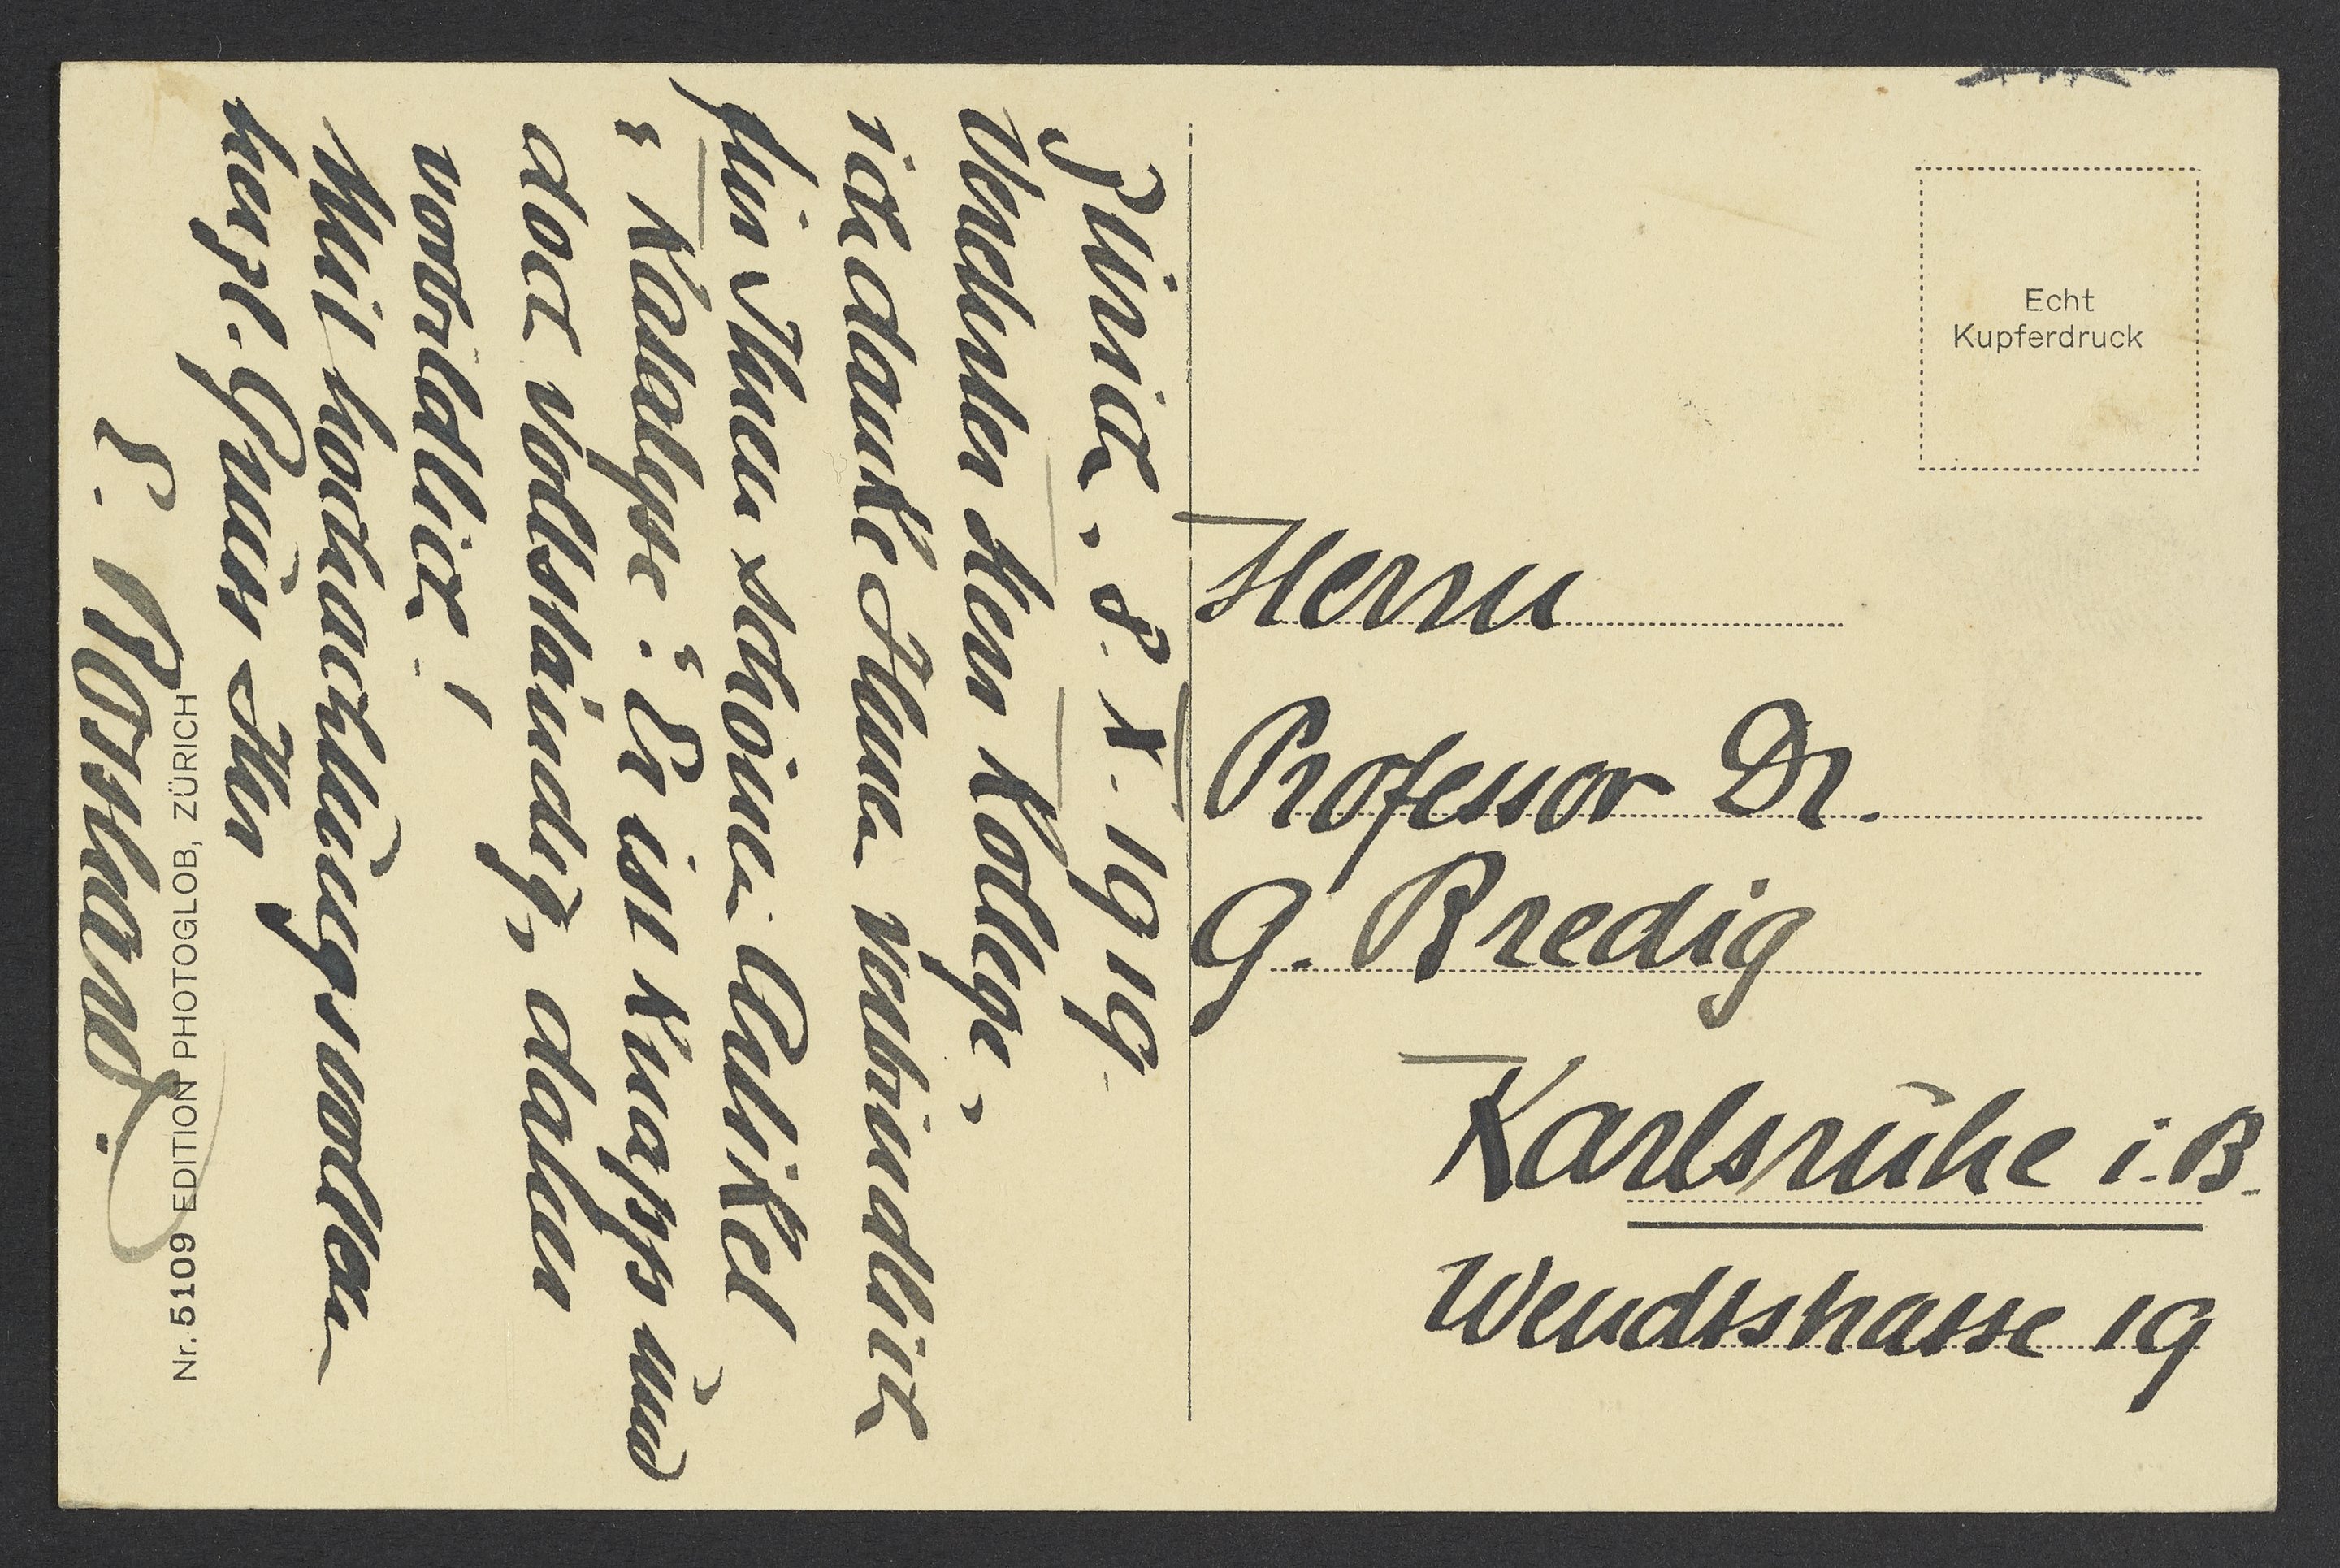 Zürich, 8. X. 1919.
Verehrter Herr Kollege,
ich danke Ihnen verbindlich
für Ihren schönen Artikel
"Katalyse". Er ist knapp und
doch vollständig, daher
vorbildlich!
Mit hochachtungsvollem
herzl. Gruss Ihr
E. Bosshard.
Nr. 5109 EDITION PHOTOGLOB, ZÜRICH
Echt
Kupferdruck
Herrn
Professor Dr.
G. Bredig
Karlsruhe i. B.
Wendtstrasse 19